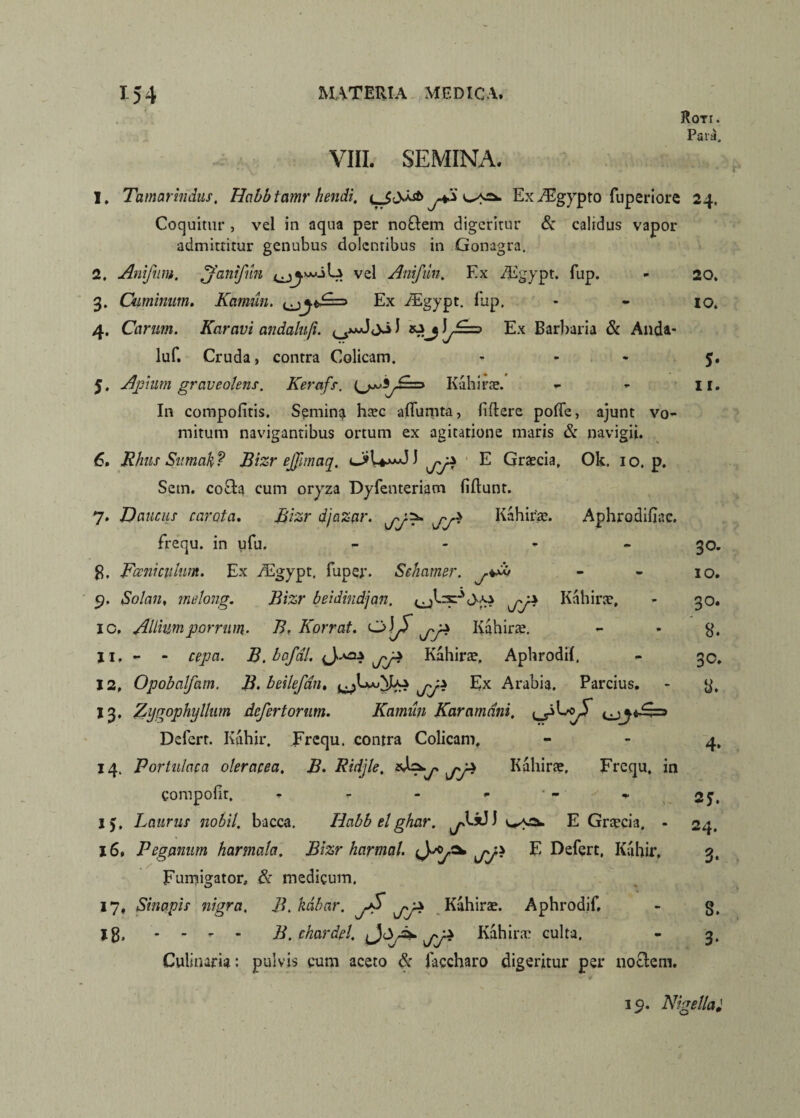 154 MATERIA MEDICA.
Roti.
Parà.
VIII. SEMINA.
1. Tamarindus. Habb tamr hendi. حب تمر هندي Ex Ægypto ſuperiore 24.
Coquitur, vel in aqua per noctem digeritur & calidus vapor
admittitur genubus dolentibus in Gonagra.
2. Aniſum. Janiſún يانسون vel Aniſún. Ex Ægypt. ſup. - 20.
3. Cuminum. Kamún. كمون Ex Ægypt. ſup. - - 10.
4. Carum. Karavi andaluſi. كراويه اندلسي Ex Barbaria & Anda-
luſ. Cruda, contra Colicam. - - - 5.
5. Apium graveolens. Kerafs. كرفس Kahiræ. - - 11.
In compoſitis. Semina hæc aſſumta, ſiſtere poſſe, ajunt vo-
mitum navigantibus ortum ex agitatione maris & navigii.
6. Rhus Sumak? Bizr eſſimaq. بزر السماق E Græcia. Ok. 10. p.
Sem. cocta cum oryza Dyſenteriam ſiſtunt.
7. Daucus carota. Bizr djazar. بزر جزر Kahiræ. Aphrodiſiac.
frequ. in uſu. - - - - 30.
8. Fœniculum. Ex Ægypt. ſuper. Schamer. شمر - - 10.
9. Solan. melong. Bizr beidindjan. بزر بيدنجان Kahiræ. - 30.
10. Allium porrum. B. Korrat. بزر كراث Kahiræ. - - 8.
11. - - cepa. B. baſal. بزر بصل Kahiræ. Aphrodiſ. - 30.
12. Opobalſam. B. beileſán. بزر بيلسان Ex Arabia. Parcius. - 8.
13. Zygophyllum deſertorum. Kamún Karamáni. كمون كرماني
Deſert. Kahir. Frequ. contra Colicam. - - 4.
14. Portulaca oleracea. B. Ridjle. بزر رجله Kahiræ. Frequ. in
compoſit. - - - - - - 25.
15. Laurus nobil. bacca. Habb el ghar. حب الغار E Græcia. - 24.
16. Peganum harmala. Bizr harmal. بزر حرمل E Deſert. Kahir. 3.
Fumigator. & medicum.
17. Sinapis nigra. B. kábar. بزر كبر Kahiræ. Aphrodiſ. - 8.
18. - - - - B. chardel. بزر خردل Kahiræ culta. - 3.
Culinaria: pulvis cum aceto & ſaccharo digeritur per noctem.
19. Nigella.